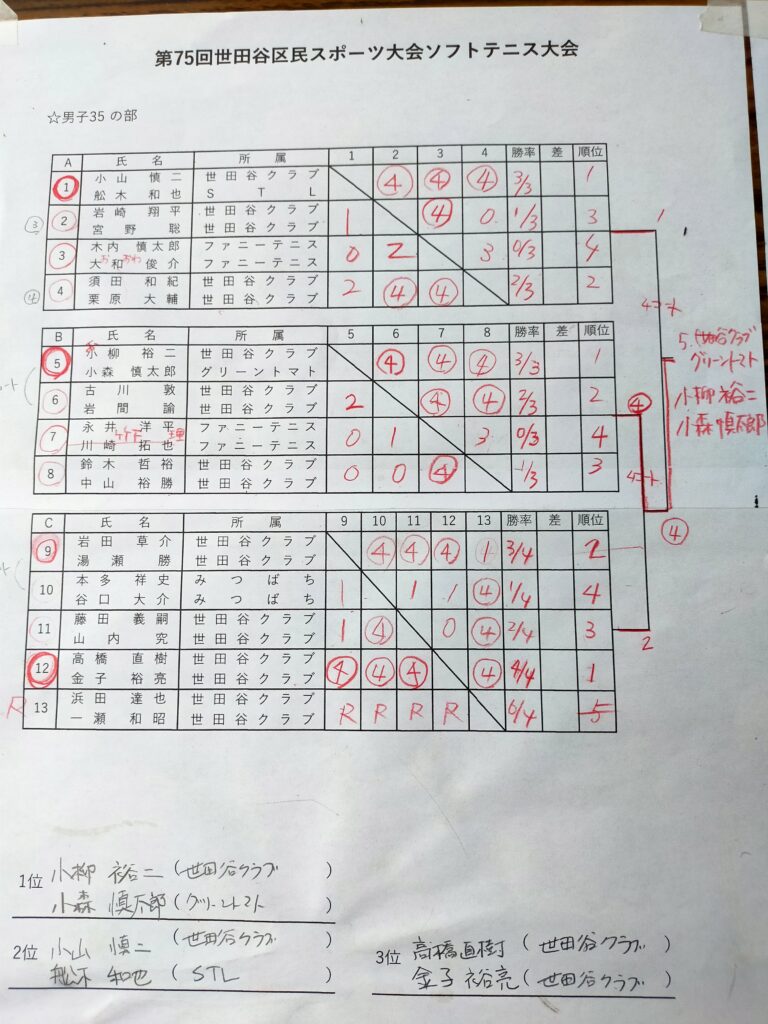 第75回世田谷区民スポーツ大会ソフトテニス大会
☆男子35 の部
A 氏名 所属 1 2 3 4 勝率 差 順位
① 小山 慎二 世田谷クラブ ④ ④ ④ 3/3 1
舩木 和也 STL
③ ② 岩崎 翔平 世田谷クラブ 1 ④ 0 1/3 3
宮野 聡 世田谷クラブ
③ 木内 慎太郎 ファニーテニス 0 2 3 0/3 4
大和 俊介 ファニーテニス
④ ④ 須田 和紀 世田谷クラブ 2 ④ ④ 2/3 2
栗原 大輔 世田谷クラブ
B 氏名 所属 5 6 7 8 勝率 差 順位
⑤ 小柳 裕二 世田谷クラブ ④ ④ ④ 3/3 1
小森 慎太郎 グリーントマト
⑥ 古川 敦 世田谷クラブ 2 ④ ④ 2/3 2
岩間 諭 世田谷クラブ
⑦ 永井 洋平 ファニーテニス 0 1 3 0/3 4
川崎 拓也 ファニーテニス
⑧ 鈴木 哲裕 世田谷クラブ 0 0 ④ 1/3 3
中山 裕勝 世田谷クラブ
C 氏名 所属 9 10 11 12 13 勝率 差 順位
⑨ 岩田 草介 世田谷クラブ ④ ④ ④ 1 3/4 2
湯瀬 勝 世田谷クラブ
10 本多 祥史 みつばち 1 1 1 ④ 1/4 4
谷口 大介 みつばち
11 藤田 義嗣 世田谷クラブ 1 ④ 0 ④ 2/4 3
山内 究 世田谷クラブ
⑫ 高橋 直樹 世田谷クラブ ④ ④ ④ ④ 4/4 1
金子 裕亮 世田谷クラブ
R 13 浜田 達也 世田谷クラブ R R R R 0/4 5
一瀬 和昭 世田谷クラブ
1
4コート
5.世田谷クラブ
グリーントマト
小柳 裕二
小森 慎太郎
④
4コート
④
2
1位 小柳 裕二 (世田谷クラブ )
小森 慎太郎 (グリーントマト )
2位 小山 慎二 (世田谷クラブ )
舩木 和也 (STL )
3位 高橋直樹 (世田谷クラブ )
金子 裕亮 (世田谷クラブ )